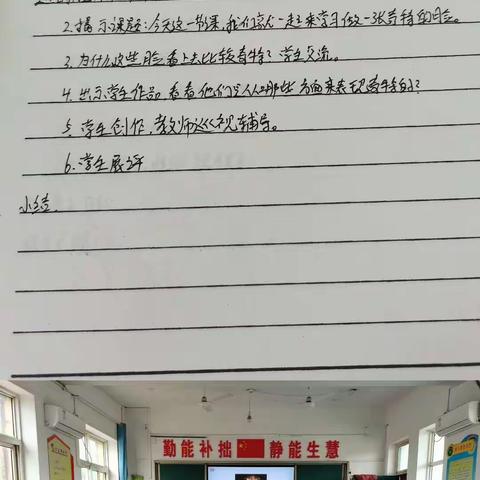 2.揭示课题:今天这一节课,我们就一起来学习做一张奇特的脸。
3.为什么这些脸看上去比较奇特?学生交流。
4.出示学生作品,看看他们是从哪些方面来表现奇特的?
5.学生创作,教师巡视辅导。
6.学生展评
小结.
勤能补拙 静能生慧